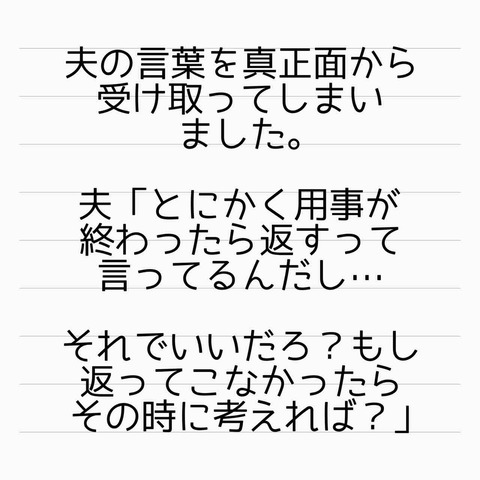 夫の言葉を真正面から
受け取ってしまい
ました。
夫「とにかく用事が
終わったら返すって
言ってるんだし…
それでいいだろ？もし
返ってこなかったら
その時に考えれば？」